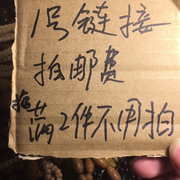 1号链接
拍邮费
满2件不用拍